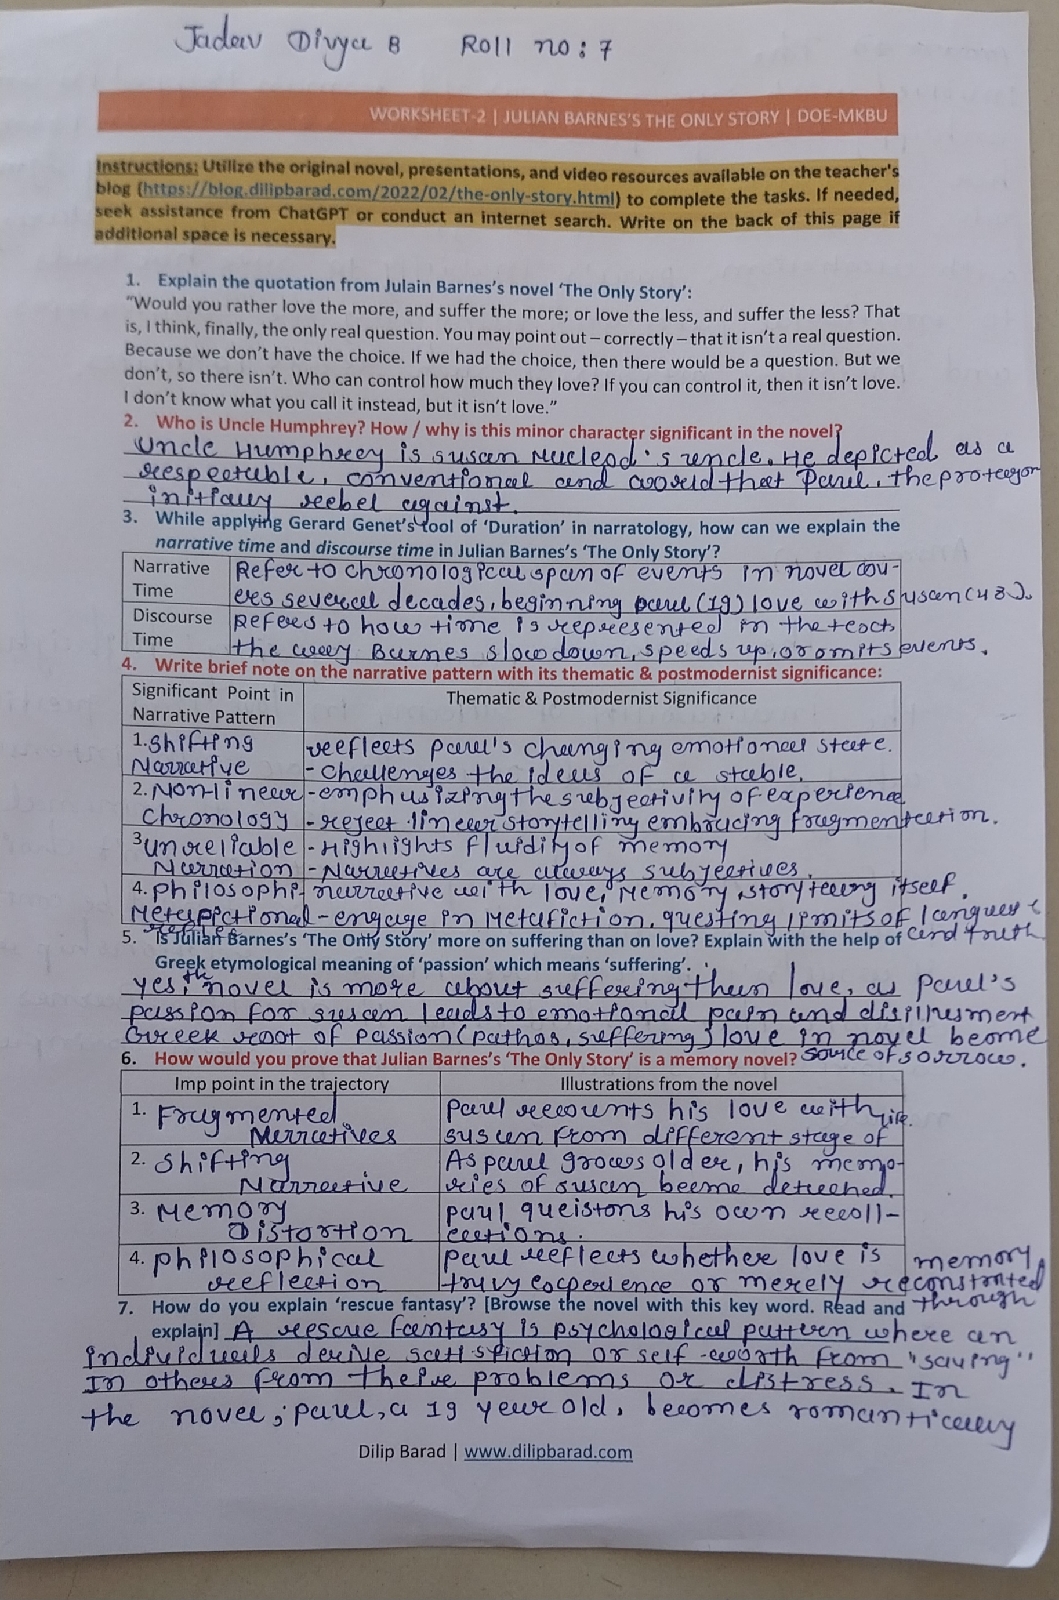 Jadav Divya B Roll no: 7
WORKSHEET-2 | JULIAN BARNES'S THE ONLY STORY | DOE-MKBU
Instructions: Utilize the original novel, presentations, and video resources available on the teacher's
blog (https://blog.dilipbarad.com/2022/02/the-only-story.html) to complete the tasks. If needed,
seek assistance from ChatGPT or conduct an internet search. Write on the back of this page if
additional space is necessary.
1. Explain the quotation from Julain Barnes's novel 'The Only Story':
"Would you rather love the more, and suffer the more; or love the less, and suffer the less? That
is, I think, finally, the only real question. You may point out – correctly – that it isn't a real question.
Because we don't have the choice. If we had the choice, then there would be a question. But we
don't, so there isn't. Who can control how much they love? If you can control it, then it isn't love.
I don't know what you call it instead, but it isn't love."
2. Who is Uncle Humphrey? How / why is this minor character significant in the novel?
Uncle Humphrey is susan Mucleod's uncle. He depicted as a
respectable, conventional and world that Paul, the protagon
initially rebel against.
3. While applying Gerard Genet's tool of 'Duration' in narratology, how can we explain the
narrative time and discourse time in Julian Barnes's 'The Only Story'?
Narrative Time
Refer to chronological span of events in novel cov-
ers several decades, beginning paul (19) love with susan (48).
Discourse Time
Refers to how time is represented in the text,
the way Barnes slow down, speeds up, or omits events.
4. Write brief note on the narrative pattern with its thematic & postmodernist significance:
Significant Point in Narrative Pattern
Thematic & Postmodernist Significance
1. Shifting Narrative
reeflects paul's changing emotional state.
- Challenges the ideas of a stable.
2. Non-linear Chronology
- emphasizing the subjectivity of experience
- reject linear storytelling embracing fragmentation.
3 unreliable Narration
- Highlights fluidity of memory
- Narratives are always subjectives.
4. philosophi- narrative with love, Memory storytelling itself.
- engage in Metafiction, questing limits of language
and truth
5. Is Julian Barnes's 'The Only Story' more on suffering than on love? Explain with the help of
Greek etymological meaning of 'passion' which means 'suffering'.
yes, the novel is more about suffering than love, as Paul's
passion for susan leads to emotional pain and
Greek root of passion (pathos, suffering) love in novel beome
source of sorrow.
6. How would you prove that Julian Barnes's 'The Only Story' is a memory novel?
Imp point in the trajectory
Illustrations from the novel
1. Fragmented Nerratives
Paul recounts his love with
susan from different stage of life.
2. Shifting Narrative
As paul grows older, his memo-
ries of susan beeme detached.
3. Memory Distortion
paul queistons his own recoll-
ections.
4. philosophical reeflection
paul reeflects whether love is
truly experience or merely reconstrated
through memory.
7. How do you explain 'rescue fantasy'? [Browse the novel with this key word. Read and
explain] A rescue fantasy is psychological pattern where an
individuals derive satisfiction or self-worth from "saving"
In others from their problems or distress. In
the novel, paul, a 19 year old, becomes romantically
Dilip Barad | www.dilipbarad.com